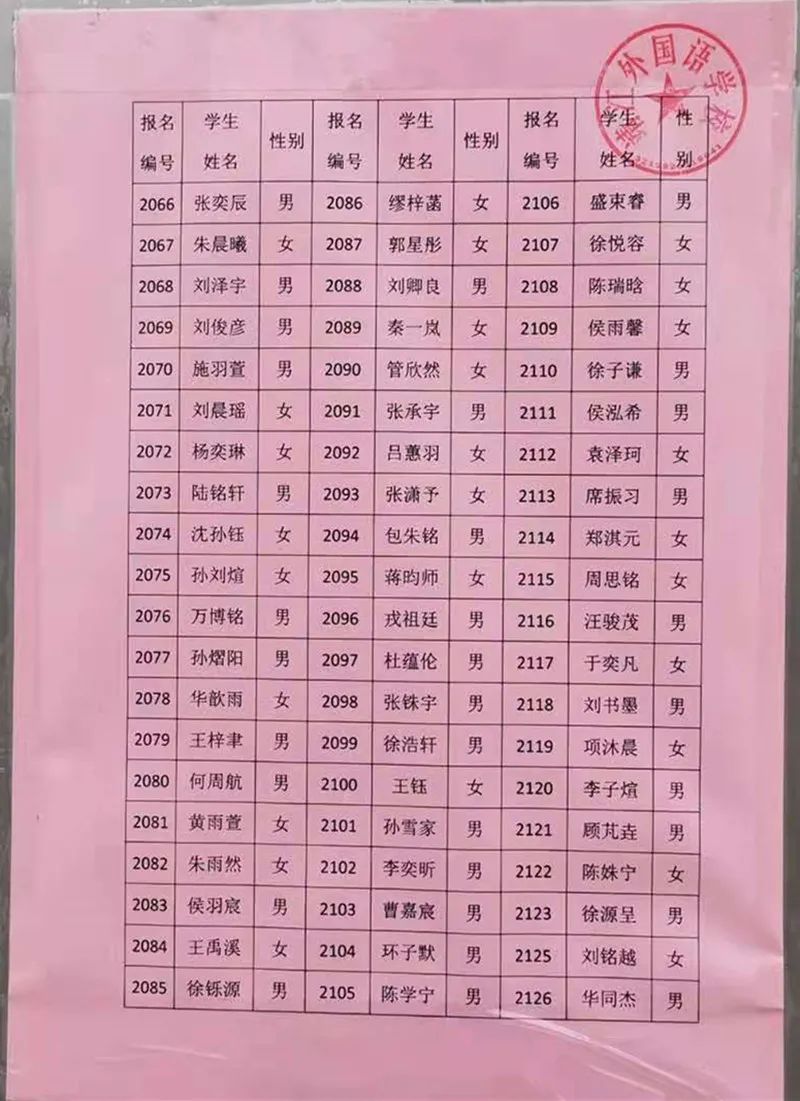 外国语学校
报名编号 学生姓名 性别 报名编号 学生姓名 性别 报名编号 学生姓名 性别
2066 张奕辰 男 2086 缪梓菡 女 2106 盛束睿 男
2067 朱晨曦 女 2087 郭星彤 女 2107 徐悦容 女
2068 刘泽宇 男 2088 刘卿良 男 2108 陈瑞晗 女
2069 刘俊彦 男 2089 秦一岚 女 2109 侯雨馨 女
2070 施羽萱 男 2090 管欣然 女 2110 徐子谦 男
2071 刘晨瑶 女 2091 张承宇 男 2111 侯泓希 男
2072 杨奕琳 女 2092 吕蕙羽 女 2112 袁泽珂 女
2073 陆铭轩 男 2093 张潇予 女 2113 席振习 男
2074 沈孙钰 女 2094 包朱铭 男 2114 郑淇元 女
2075 孙刘煊 女 2095 蒋昀师 女 2115 周思铭 女
2076 万博铭 男 2096 戎祖廷 男 2116 汪骏茂 男
2077 孙熠阳 男 2097 杜蕴伦 男 2117 于奕凡 女
2078 华歆雨 女 2098 张铢宇 男 2118 刘书墨 男
2079 王梓聿 男 2099 徐浩轩 男 2119 项沐晨 女
2080 何周航 男 2100 王钰 女 2120 李子煊 男
2081 黄雨萱 女 2101 孙雪家 男 2121 顾芃垚 男
2082 朱雨然 女 2102 李奕昕 男 2122 陈姝宁 女
2083 侯羽宸 男 2103 曹嘉宸 男 2123 徐源呈 男
2084 王禹溪 女 2104 环子默 男 2125 刘铭越 女
2085 徐铄源 男 2105 陈学宁 男 2126 华同杰 男